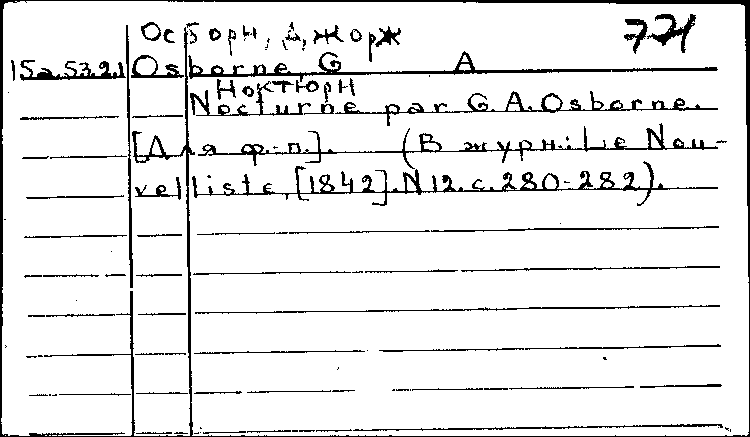 Осборн, Джорж 771
15а.53.2.1 Osborne, G A
Ноктюрн
Nocturne par G.A.Osborne.
[Для ф.-п.]. (В журн.: Le Nou-
velliste, [1842]. N 12. с. 280-282).